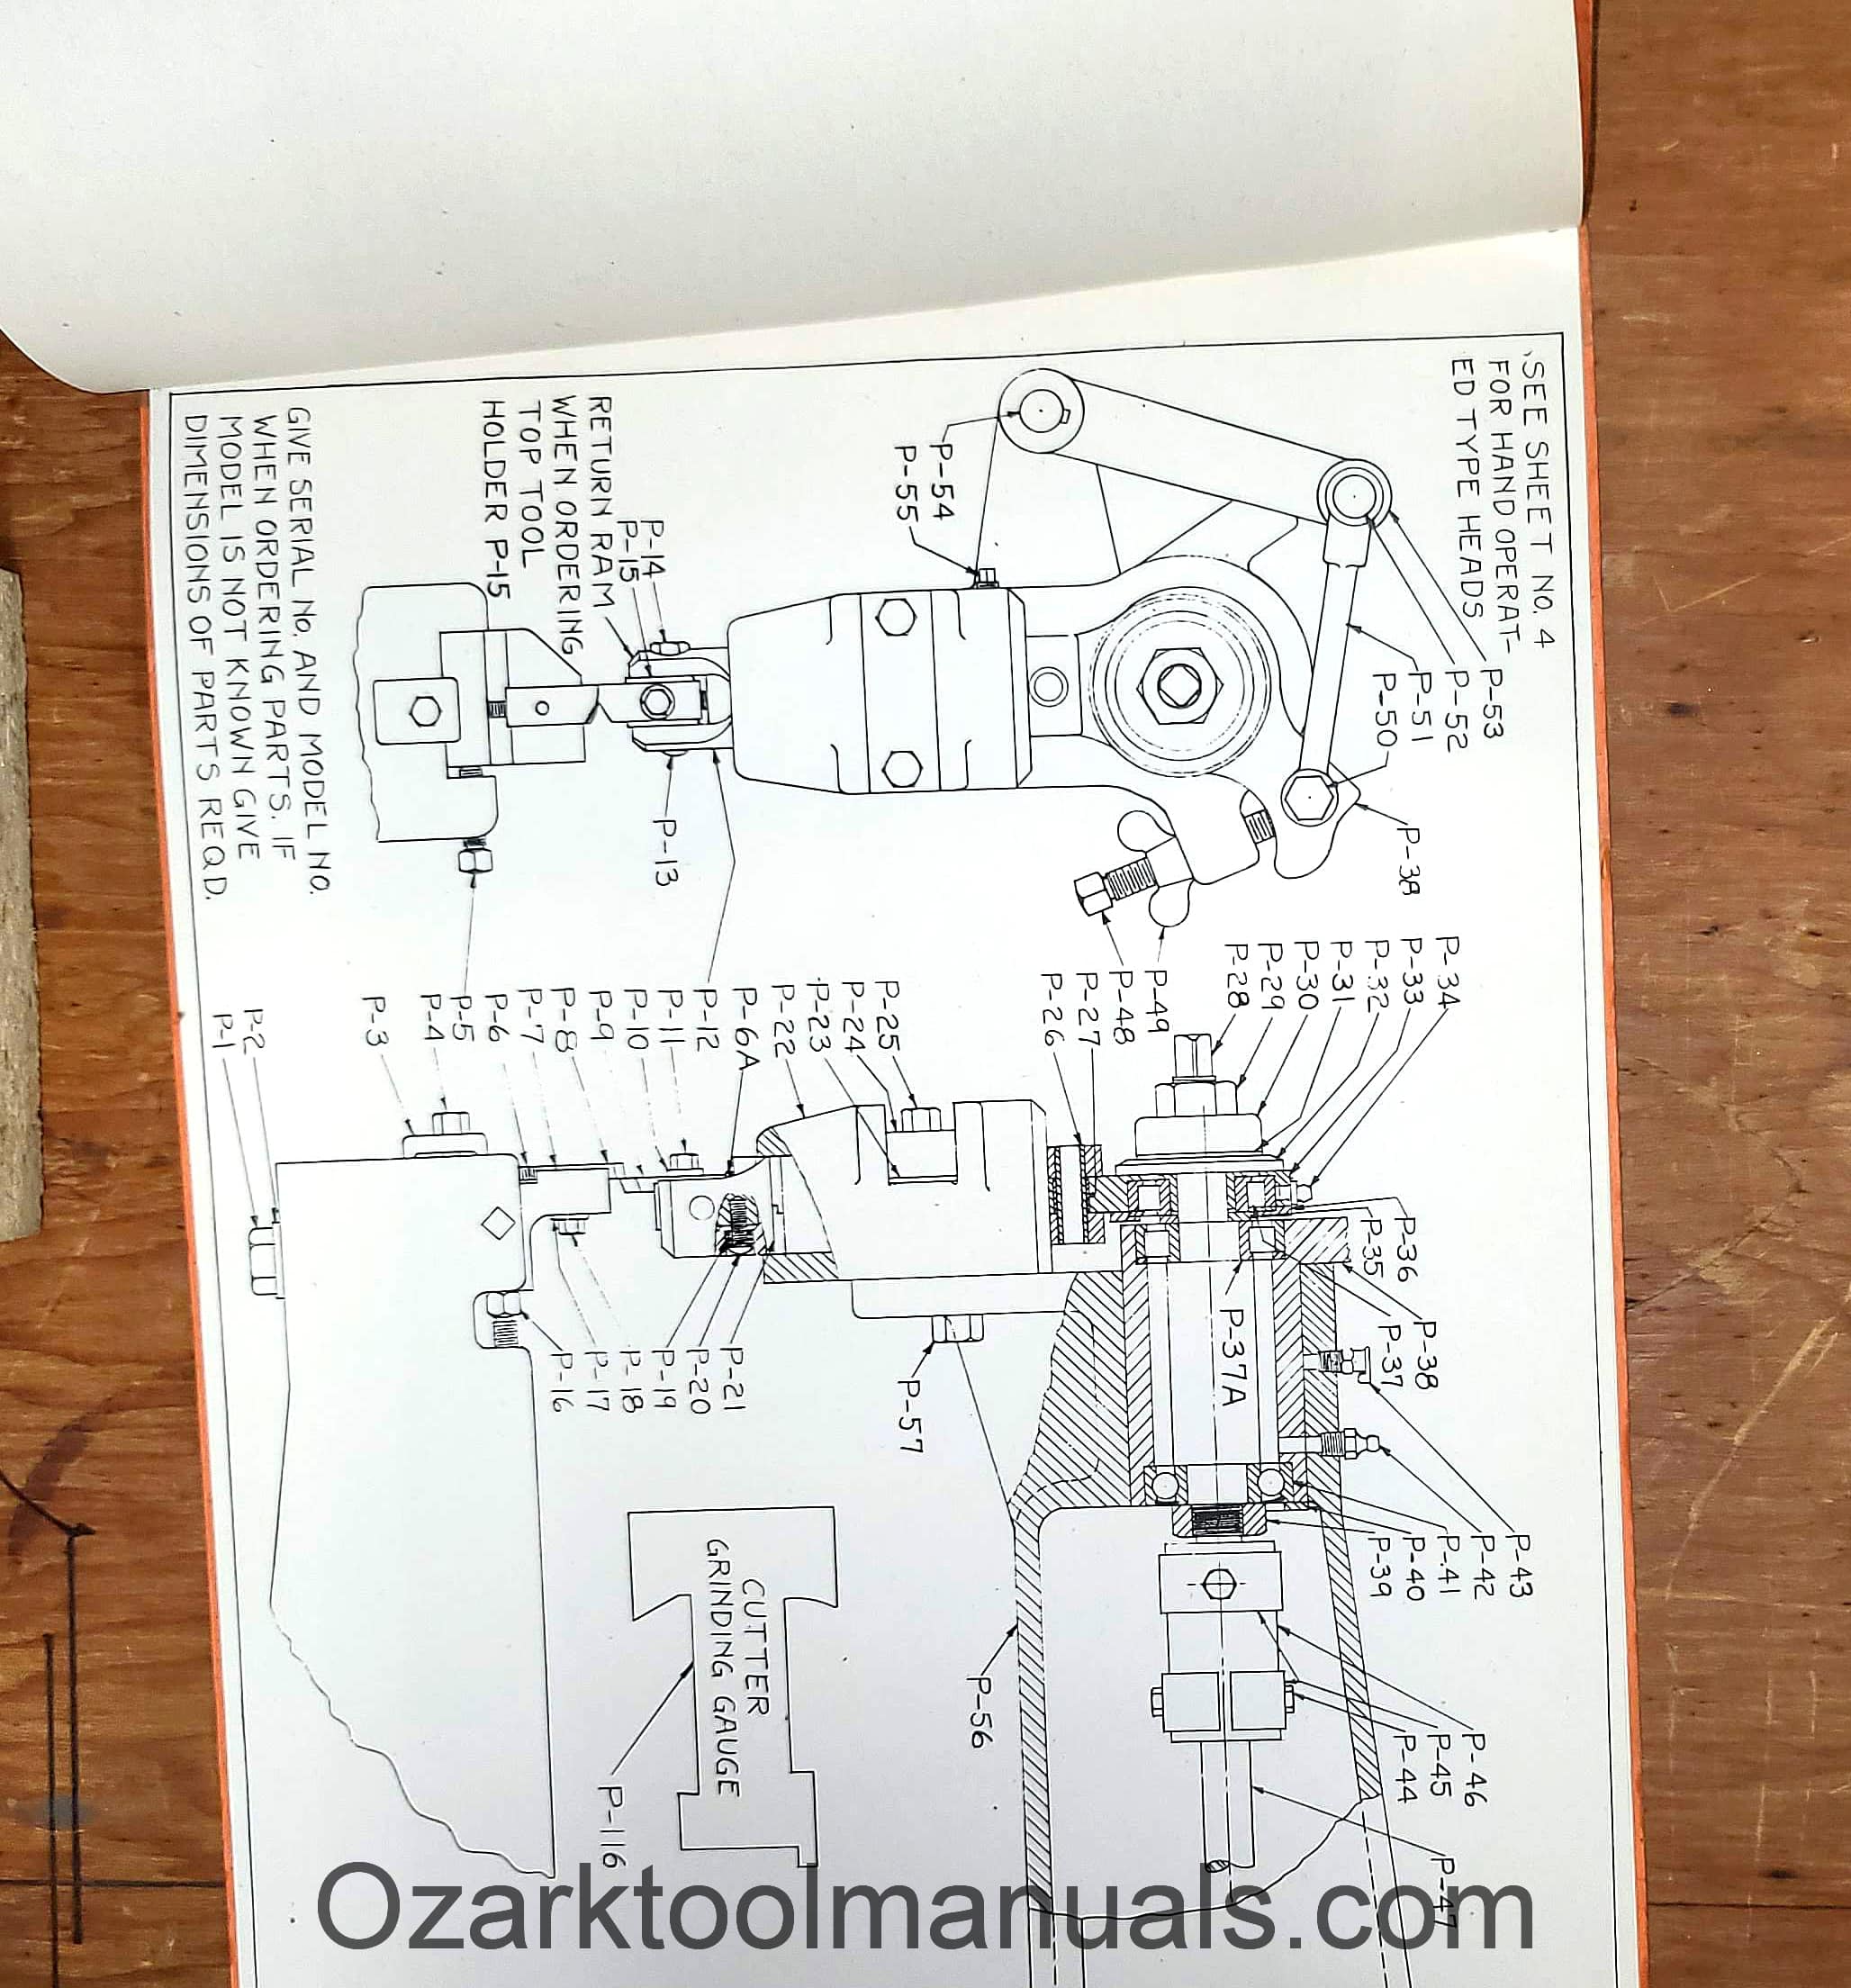 SEE SHEET NO. 4
FOR HAND OPERAT-
ED TYPE HEADS
P-53
P-52
P-51
P-50
P-38
P-54
P-55
P-14
P-15
RETURN RAM
WHEN ORDERING
TOP TOOL
HOLDER P-15
P-13
GIVE SERIAL No. AND MODEL NO.
WHEN ORDERING PARTS. IF
MODEL IS NOT KNOWN GIVE
DIMENSIONS OF PARTS REQD.
P-34
P-33
P-32
P-31
P-30
P-29
P-28
P-49
P-48
P-27
P-26
P-25
P-24
P-23
P-22
P-6A
P-12
P-11
P-10
P-9
P-8
P-7
P-6
P-5
P-4
P-3
P-2
P-1
P-36
P-35
P-38
P-37
P-37A
P-57
P-21
P-20
P-19
P-18
P-17
P-16
P-43
P-42
P-41
P-40
P-39
P-56
CUTTER
GRINDING GAUGE
P-116
P-46
P-45
P-44
P-47
Ozarktoolmanuals.com